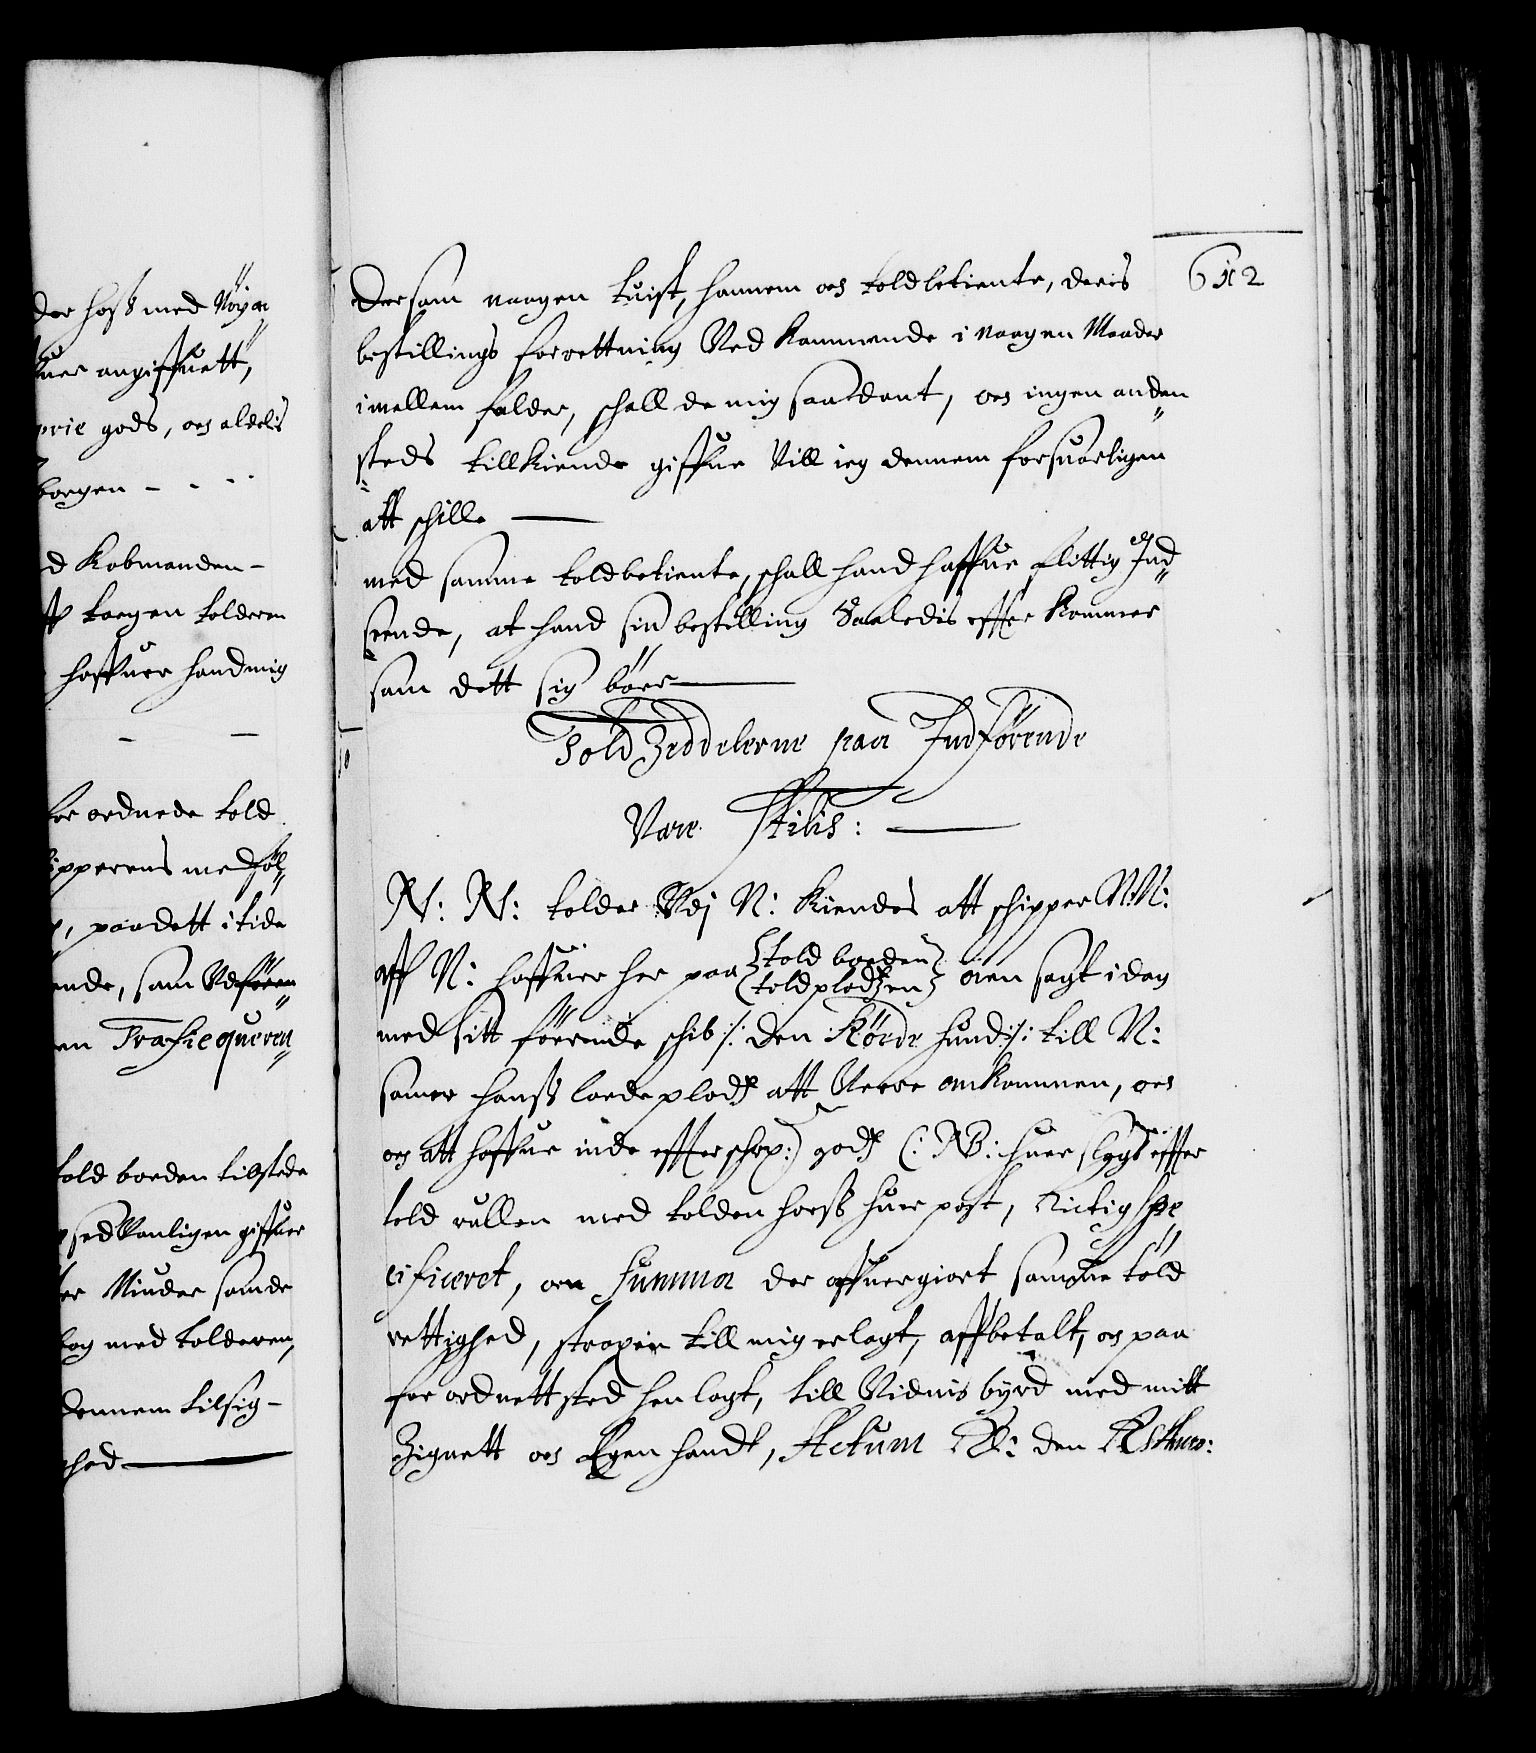 der hoss med Nöyae
huer angiffuett,
prie gods, och aldelis
borgen - - - -
d Kobmanden -
ff borgen tolderen
haffuer hand mig
for ordnede told
schipperens medföl„
paa dett i tide
ende, som Vdfören„
en Traficqueren„
told boeden tilstede
sedVanligen giffuer
er Minder samde
log med tolderen,
dennem tilsig-
ghed
612
Dersom naagen tuist, hannem och toldbetiente, deris
bestillings forrettning Ved Kommende i naagen Maader
imellem falder, schall de mig saadant, och ingen anden„
steds tillkiende giffue Vill ieg dennem forsuarligen
att schille
med samme toldbetiente, schall hand haffue flittig Ind„
seende, at hand sin bestilling Saaledis effter Kommer
som dett sig bör
Told Zeddelerne paa Indförende
Vare Stilis:
N: N: tolder Vdj N: Kiendes att schipper N:N:
aff N: haffuer her paa told boeden
toldplodtzen öien sagt i dag
med sitt förende schib /: den Körde hund :/ till N:
samer hanss lande plodtz att Verre ankommen, och
och att haffue inde effterschr: godtz (: NB: huer slags effter
told rullen med tolden hoess huer post, Rictig spe„
cificeret, en Summa der offuergiort samme told
rettighed, straxen till mig erlagt, aff betalt, och paa
for ordnett sted hen lagt, till Vidnis byrd med mitt
Zignett och Egen handt, Actum N: den